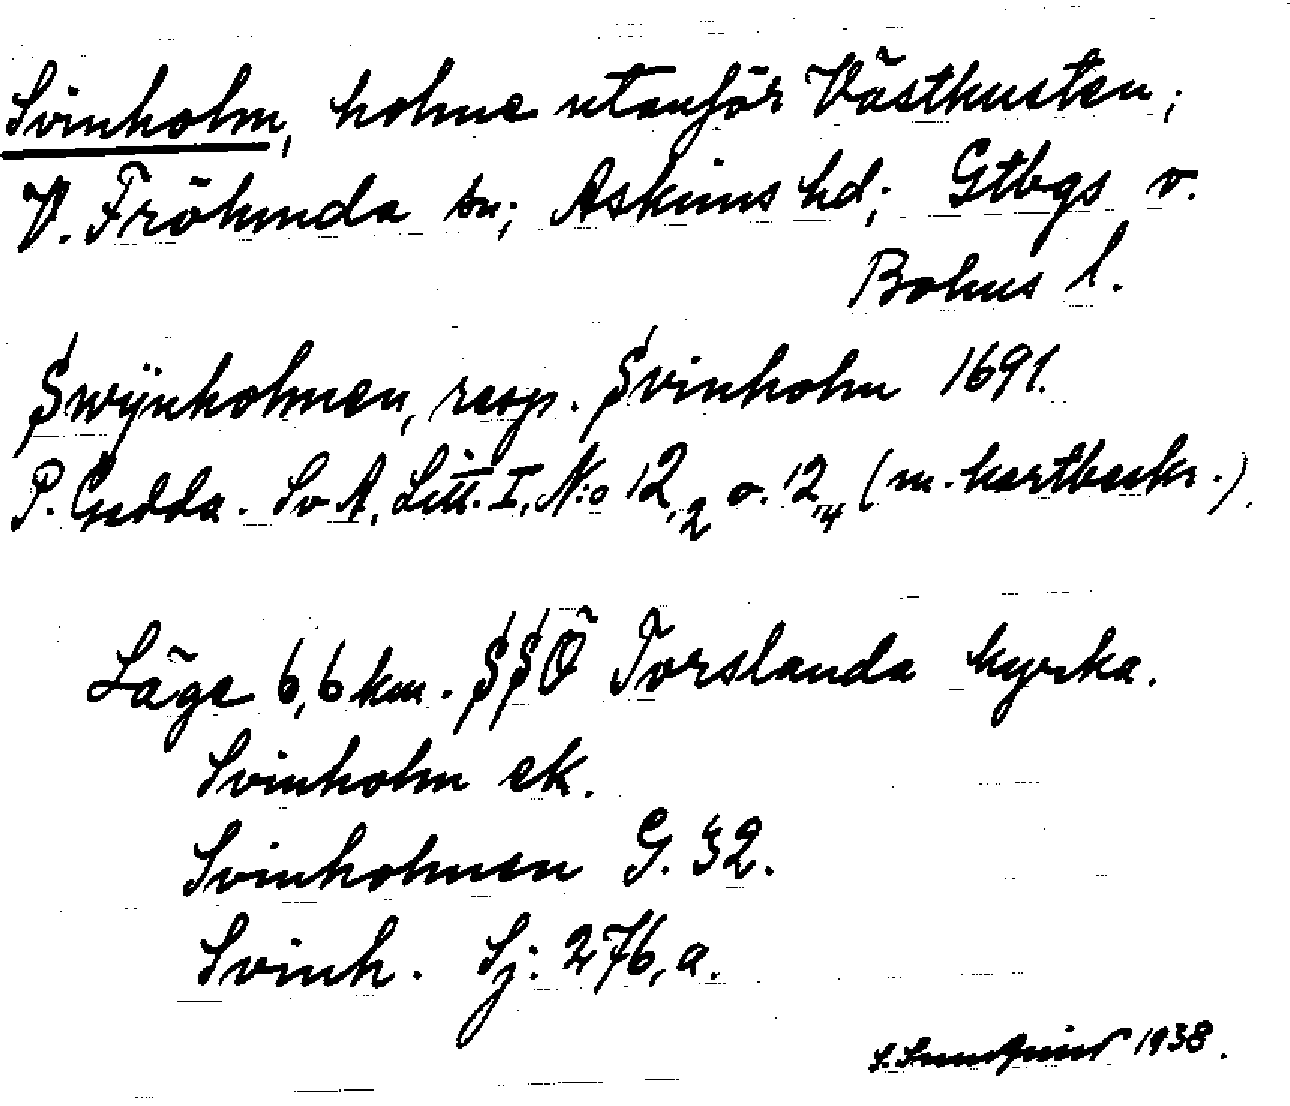 Svinholm, holme utanför Västkusten;
V. Frölunda sn; Askims hd; Gtbgs o.
Bohus l.
Swÿnholmen, resp. Svinholm 1691.
P. Gedda. Sv A. Litt. I, N:o 12,2 o. 12,4 (m. kartbeskr.)
Läge 6,6 km. SSÖ Torslanda kyrka.
Svinholm ek.
Svinholmen G. 32.
Svinh. Sj. 276, a.
1938.